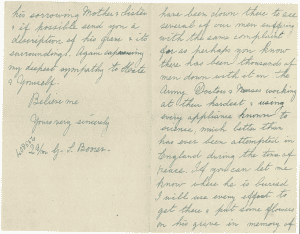 his sorrowing Mother & Sister
& if possible send you a
description of his grave & its
surroundings. Again expressing
my deepest sympathy to
& Yourself.
Believe me
Yours very sincerely
F. Boxer.
have been down there to see
several of our men suffering
with the same complaint
so perhaps you know
there has been thousands of
men down with it in the
Army. Doctors & Nurses working
at their hardest & using
every appliance known to
science, much better than
has ever been attempted in
England during the time of
peace. If you can let me
know where he is buried
I will use every effort to
get there & put some flowers
on his grave in memory of